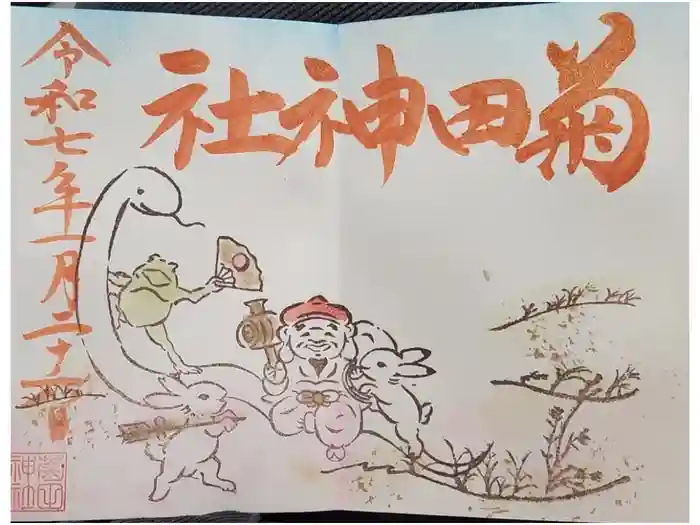 菊田神社
令和七年一月二十一日
菊田神社